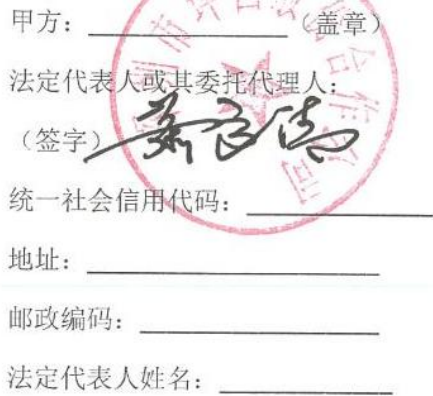 甲方：（盖章）
法定代表人或其委托代理人：
（签字）
统一社会信用代码：
地址：
邮政编码：
法定代表人姓名：